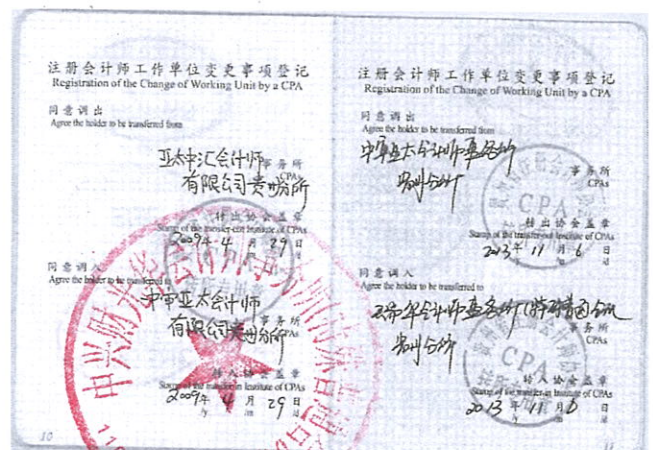 注册会计师工作单位变更事项登记
Registration of the Change of Working Unit by a CPA
同意调出
Agree the holder to be transferred from
亚太中汇会计师事务所
CPAs
有限公司贵州分所
转出协会盖章
Stamp of the transfer-out Institute of CPAs
2009年4月29日
同意调入
Agree the holder to be transferred to
中审亚太会计师事务所
CPAs
有限公司贵州分所
转入协会盖章
Stamp of the transfer-in Institute of CPAs
2009年4月29日
10
注册会计师工作单位变更事项登记
Registration of the Change of Working Unit by a CPA
同意调出
Agree the holder to be transferred from
中审亚太会计师事务所
事务所
CPAs
贵州分所
CPA
转出协会盖章
Stamp of the transfer-out Institute of CPAs
2013年11月6日
同意调入
Agree the holder to be transferred to
会计师事务所(特殊普通合伙)
事务所
CPAs
贵州分所
CPA
转入协会盖章
Stamp of the transfer-in Institute of CPAs
2013年11月6日
11
中兴财光华会计师事务所(特殊普通合伙)